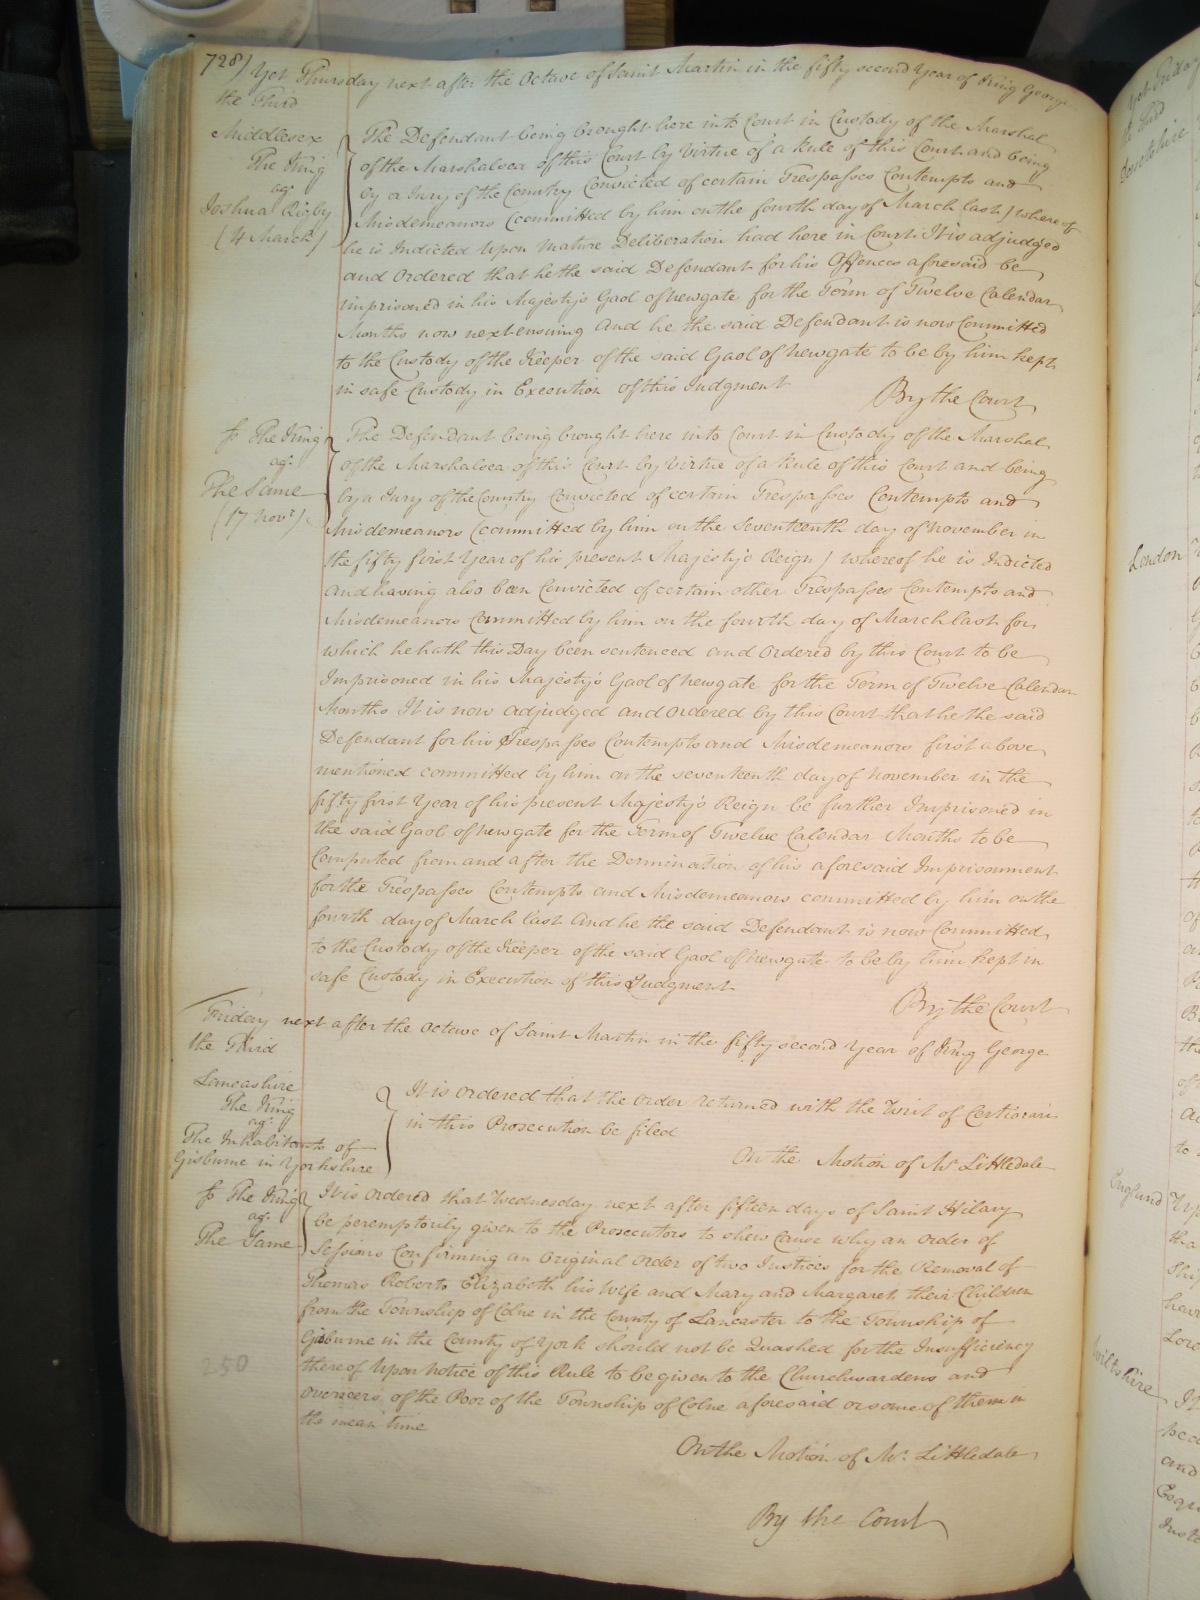 728/ Yet Thursday next after the Octave of Saint Martin in the fifty second Year of King George
the Third
Middlesex
The King
agt
Joshua Rigby
(4 March)
The Defendant being brought here into Court in Custody of the Marshal
of the Marshalsea of this Court by Virtue of a Rule of this Court and being
by a Jury of the Country Convicted of certain Trespasses Contempts and
Misdemeanors (committed by him on the fourth day of March last) whereof
he is Indicted Upon Mature Deliberation had here in Court It is adjudged
and Ordered that he the said Defendant for his Offences aforesaid be
imprisoned in his Majesty's Gaol of Newgate for the Term of Twelve Calendar
Months now next ensuing And he the said Defendant is now Committed
to the Custody of the Keeper of the said Gaol of Newgate to be by him kept
in safe Custody in Execution of this Judgment
By the Court
fo The King
agt
The Same
(17 Novr)
The Defendant being brought here into Court in Custody of the Marshal
of the Marshalsea of this Court by Virtue of a Rule of this Court and being
by a Jury of the Country Convicted of certain Trespasses Contempts and
Misdemeanors (committed by him on the Seventeenth day of November in
the fifty first Year of his present Majesty's Reign) whereof he is Indicted
And having also been Convicted of certain other Trespasses Contempts and
Misdemeanors Committed by him on the fourth day of March last for
which he hath this Day been sentenced and Ordered by this Court to be
Imprisoned in his Majesty's Gaol of Newgate for the Term of Twelve Calendar
Months It is now adjudged and Ordered by this Court that he the said
Defendant for his Trespasses Contempts and Misdemeanors first above
mentioned committed by him on the seventeenth day of November in the
fifty first Year of his present Majesty's Reign be further Imprisoned in
the said Gaol of Newgate for the Term of Twelve Calendar Months to be
Computed from and after the Dermination of his aforesaid Imprisonment
for the Trespasses Contempts and Misdemeanors committed by him on the
fourth day of March last And he the said Defendant is now Committed
to the Custody of the Keeper of the said Gaol of Newgate to be by him kept in
safe Custody in Execution of this Judgment
By the Court
Friday next after the Octave of Saint Martin in the fifty second Year of King George
the Third
Lancashire
The King
agt
The Inhabitants of
Gisburne in Yorkshire
It is Ordered that the Order returned with the Writ of Certiorari
in this Prosecution be filed
On the Motion of Mr Littledale
fo The King
agt
The Same
It is Ordered that Wednesday next after fifteen days of Saint Hilary
be peremptorily given to the Prosecutors to shew Cause why an Order of
Sessions Confirming an Original Order of two Justices for the Removal of
Thomas Roberts Elizabeth his Wife and Mary and Margaret their Children
from the Township of Colne in the County of Lancaster to the Township of
Gisburne in the County of York should not be Quashed for the Insufficiency
thereof Upon Notice of this Rule to be given to the Churchwardens and
Overseers of the Poor of the Township of Colne aforesaid or some of them in
the mean time
On the Motion of Mr. Littledale
By the Court
250
London
England
Wiltshire